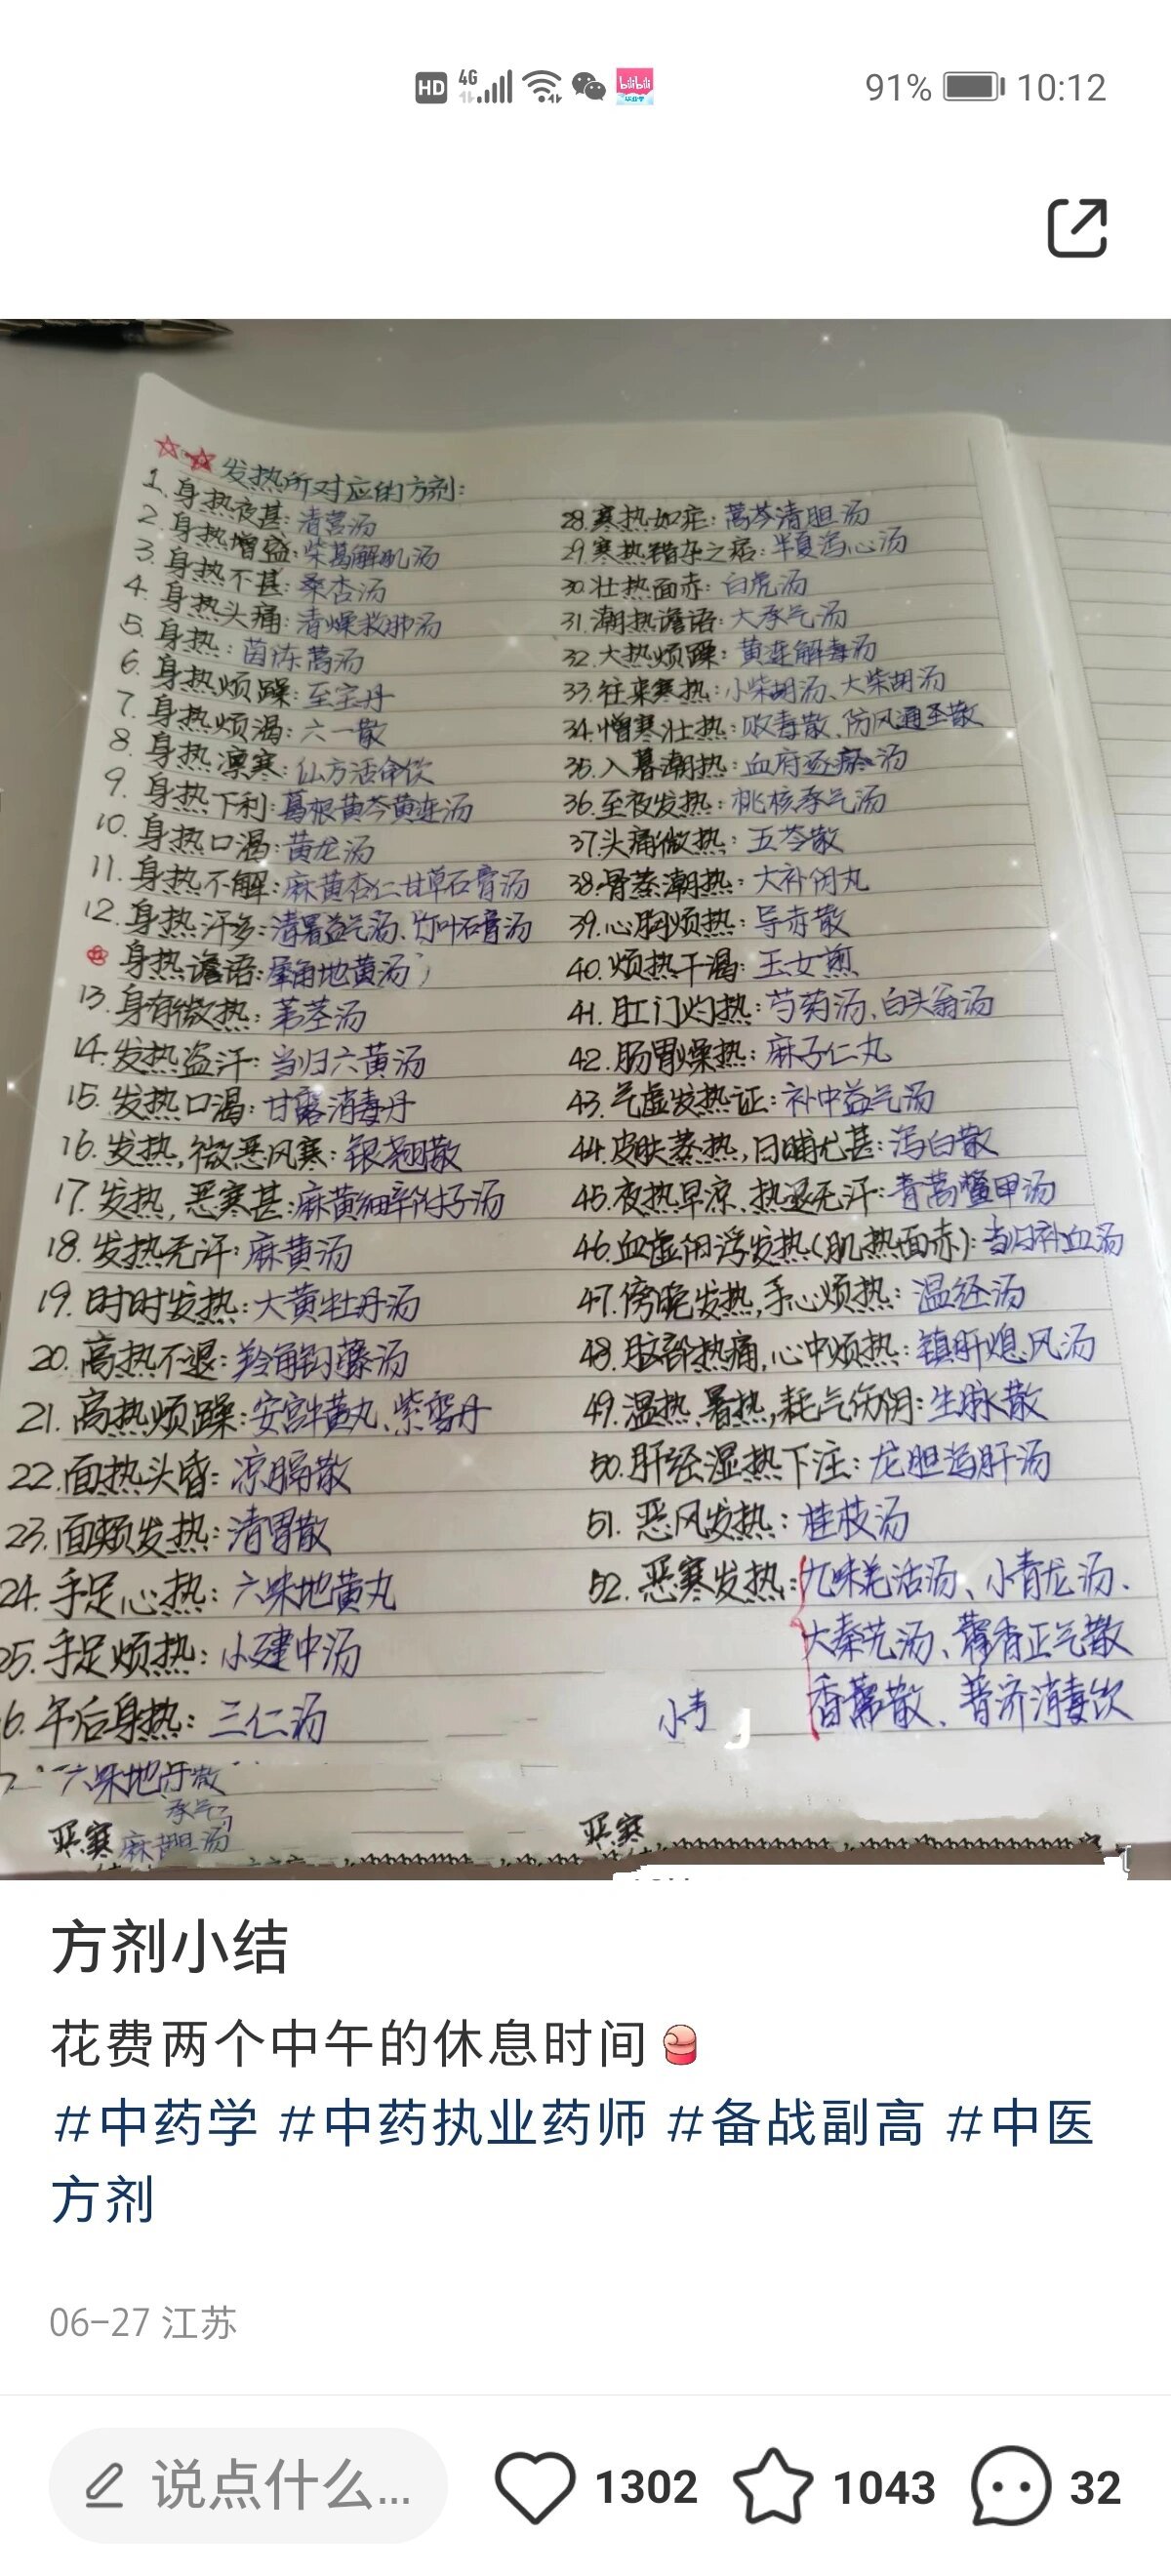 HD 4G bilibili 91% 10:12
发热所对应的方剂:
1.身热夜甚:清营汤
2.身热增盛:柴葛解肌汤
3.身热不甚:桑杏汤
4.身热头痛:清燥救肺汤
5.身热:茵陈蒿汤
6.身热烦躁:至宝丹
7.身热烦渴:六一散
8.身热凛寒:仙方活命饮
9.身热下利:葛根黄芩黄连汤
10.身热口渴:黄龙汤
11.身热不解:麻黄杏仁甘草石膏汤
12.身热汗多:清暑益气汤、竹叶石膏汤
身热谵语:犀角地黄汤
13.身有微热:苇茎汤
14.发热盗汗:当归六黄汤
15.发热口渴:甘露消毒丹
16.发热,微恶风寒:银翘散
17.发热,恶寒甚:麻黄细辛附子汤
18.发热无汗:麻黄汤
19.时时发热:大黄牡丹汤
20.高热不退:羚角钩藤汤
21.高热烦躁:安宫牛黄丸、紫雪丹
22.面热头昏:凉膈散
23.面颊发热:清胃散
24.手足心热:六味地黄丸
25.手足烦热:小建中汤
6.午后身热:三仁汤
六味地
承气汤
恶寒
28.寒热如疟:蒿芩清胆汤
29.寒热错杂之痞:半夏泻心汤
30.壮热面赤:白虎汤
31.潮热谵语:大承气汤
32.大热烦躁:黄连解毒汤
33.往来寒热:小柴胡汤、大柴胡汤
34.憎寒壮热:败毒散、防风通圣散
35.入暮潮热:血府逐瘀汤
36.至夜发热:桃核承气汤
37.头痛微热:五苓散
38.骨蒸潮热:大补阴丸
39.心胸烦热:导赤散
40.烦热干渴:玉女煎
41.肛门灼热:芍药汤、白头翁汤
42.肠胃燥热:麻子仁丸
43.气虚发热证:补中益气汤
44.皮肤蒸热,日晡尤甚:泻白散
45.夜热早凉、热退无汗:青蒿鳖甲汤
46.血虚阳浮发热(肌热面赤):当归补血汤
47.傍晚发热,手心烦热:温经汤
48.脑部热痛,心中烦热:镇肝熄风汤
49.温热、暑热,耗气伤阴:生脉散
50.肝经湿热下注:龙胆泻肝汤
51.恶风发热:桂枝汤
52.恶寒发热:九味羌活汤、小青龙汤、
大秦艽汤、藿香正气散
香薷散、普济消毒饮
小青
恶寒
方剂小结
花费两个中午的休息时间
#中药学 #中药执业药师 #备战副高 #中医
方剂
06-27 江苏
说点什么... 1302 1043 32